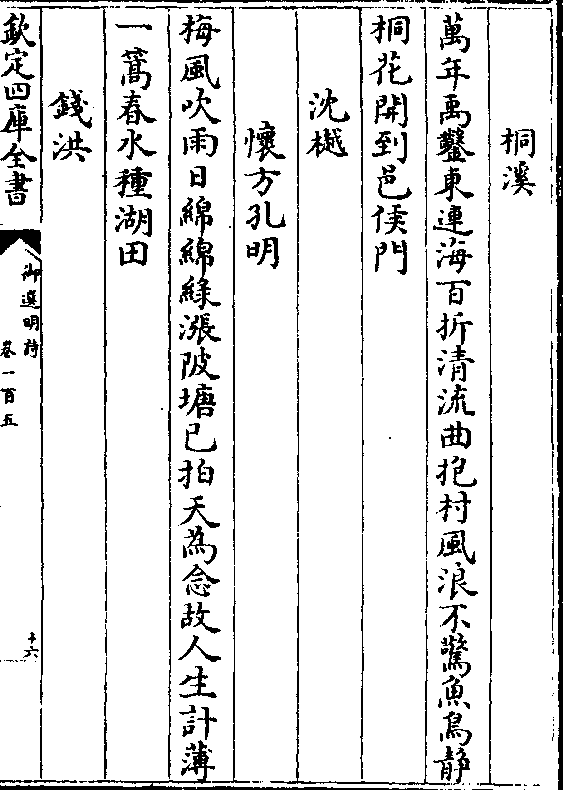 桐溪
萬年禹鑿東連海百折清流曲抱村風浪不驚魚鳥静
桐花開到邑侯門
沈樾
懷方孔明
梅風吹雨日綿綿綠漲陂塘已拍天為念故人生計薄
一篙春水種湖田
錢洪
欽定四庫全書
御選明詩
卷一百五
十六